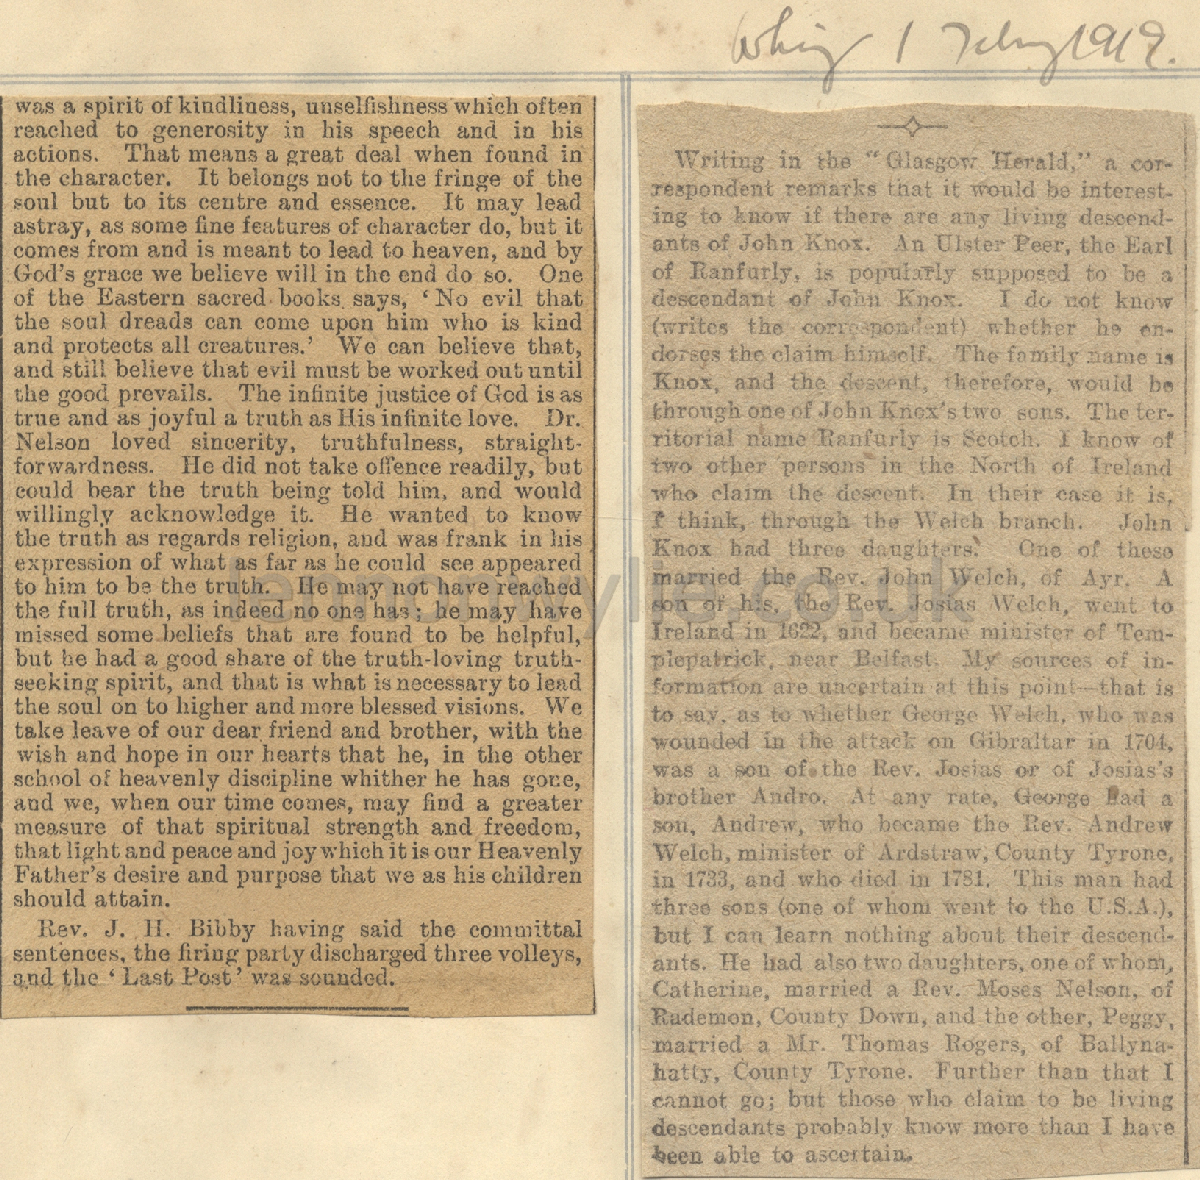 Whig 1 Febry 1919.
was a spirit of kindliness, unselfishness which often
reached to generosity in his speech and in his
actions. That means a great deal when found in
the character. It belongs not to the fringe of the
soul but to its centre and essence. It may lead
astray, as some fine features of character do, but it
comes from and is meant to lead to heaven, and by
God's grace we believe will in the end do so. One
of the Eastern sacred books says, ‘No evil that
the soul dreads can come upon him who is kind
and protects all creatures.’ We can believe that,
and still believe that evil must be worked out until
the good prevails. The infinite justice of God is as
true and as joyful a truth as His infinite love. Dr.
Nelson loved sincerity, truthfulness, straight-
forwardness. He did not take offence readily, but
could bear the truth being told him, and would
willingly acknowledge it. He wanted to know
the truth as regards religion, and was frank in his
expression of what as far as he could see appeared
to him to be the truth. He may not have reached
the full truth, as indeed no one has; he may have
missed some beliefs that are found to be helpful,
but he had a good share of the truth-loving truth-
seeking spirit, and that is what is necessary to lead
the soul on to higher and more blessed visions. We
take leave of our dear friend and brother, with the
wish and hope in our hearts that he, in the other
school of heavenly discipline whither he has gone,
and we, when our time comes, may find a greater
measure of that spiritual strength and freedom,
that light and peace and joy which it is our Heavenly
Father's desire and purpose that we as his children
should attain.
Rev. J. H. Bibby having said the committal
sentences, the firing party discharged three volleys,
and the ‘Last Post’ was sounded.
Writing in the “Glasgow Herald,” a cor-
respondent remarks that it would be interest-
ing to know if there are any living descend-
ants of John Knox. An Ulster Peer, the Earl
of Ranfurly, is popularly supposed to be a
descendant of John Knox. I do not know
(writes the correspondent) whether he en-
dorses the claim himself. The family name is
Knox, and the descent, therefore, would be
through one of John Knox's two sons. The ter-
ritorial name Ranfurly is Scotch. I know of
two other persons in the North of Ireland
who claim the descent. In their case it is,
I think, through the Welch branch. John
Knox had three daughters. One of these
married the Rev. John Welch, of Ayr. A
son of his, the Rev. Josias Welch, went to
Ireland in 1622, and became minister of Tem-
plepatrick, near Belfast. My sources of in-
formation are uncertain at this point—that is
to say, as to whether George Welch, who was
wounded in the attack on Gibraltar in 1704,
was a son of the Rev. Josias or of Josias's
brother Andro. At any rate, George had a
son, Andrew, who became the Rev. Andrew
Welch, minister of Ardstraw, County Tyrone,
in 1733, and who died in 1781. This man had
three sons (one of whom went to the U.S.A.),
but I can learn nothing about their descend-
ants. He had also two daughters, one of whom,
Catherine, married a Rev. Moses Nelson, of
Rademon, County Down, and the other, Peggy,
married a Mr. Thomas Rogers, of Ballyna-
hatty, County Tyrone. Further than that I
cannot go; but those who claim to be living
descendants probably know more than I have
been able to ascertain.